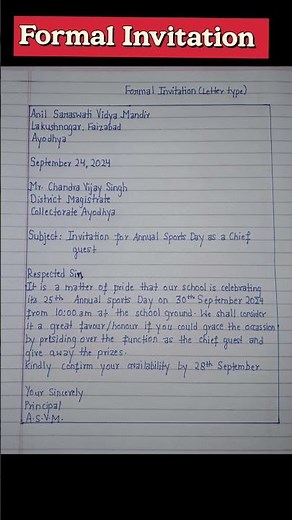 Formal Invitation
Formal Invitation (Letter type)
Anil Saraswati Vidya Mandir
Lakushnagar, Faizabad
Ayodhya
September 24, 2024
Mr. Chandra Vijay Singh
District Magistrate
Collectorate Ayodhya
Subject: Invitation for Annual Sports Day as a Chief
guest
Respected Sir,
It is a matter of pride that our school is celebrating
its 25th Annual sports Day on 30th September 2024
from 10:00 am at the school ground. We shall consider
it a great favour/honour if you could grace the occassion
by presiding over the function as the chief guest and
give away the prizes.
Kindly confirm your availability by 28th September.
Your Sincerely
Principal
A.S.V.M.